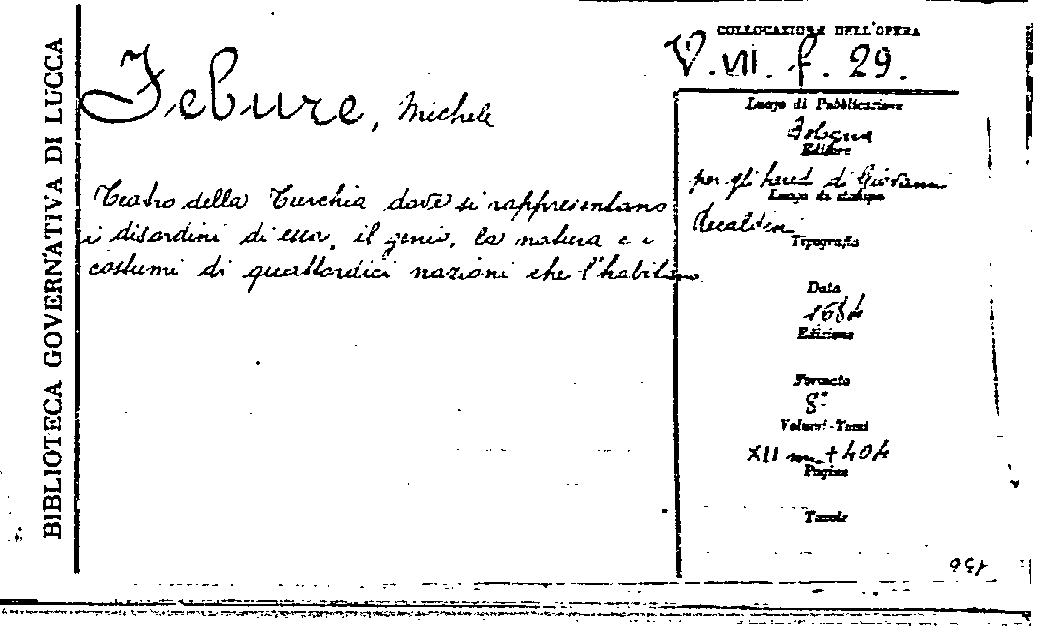 BIBLIOTECA GOVERNATIVA DI LUCCA
Febure, Michele
Teatro della Turchia dove si rappresentano
i disordini di essa, il genio, la natura e i
costumi di quattordici nazioni che l'habitano
COLLOCAZIONE DELL'OPERA
V. VII. f. 29.
Luogo di Pubblicazione
Bologna
Editore
per gli hered. di Giovanni
Luogo di stampa
Recaldini
Tipografia
Data
1684
Edizione
Formato
8°
Volumi-Tomi
XII + 404
Pagine
Tavole